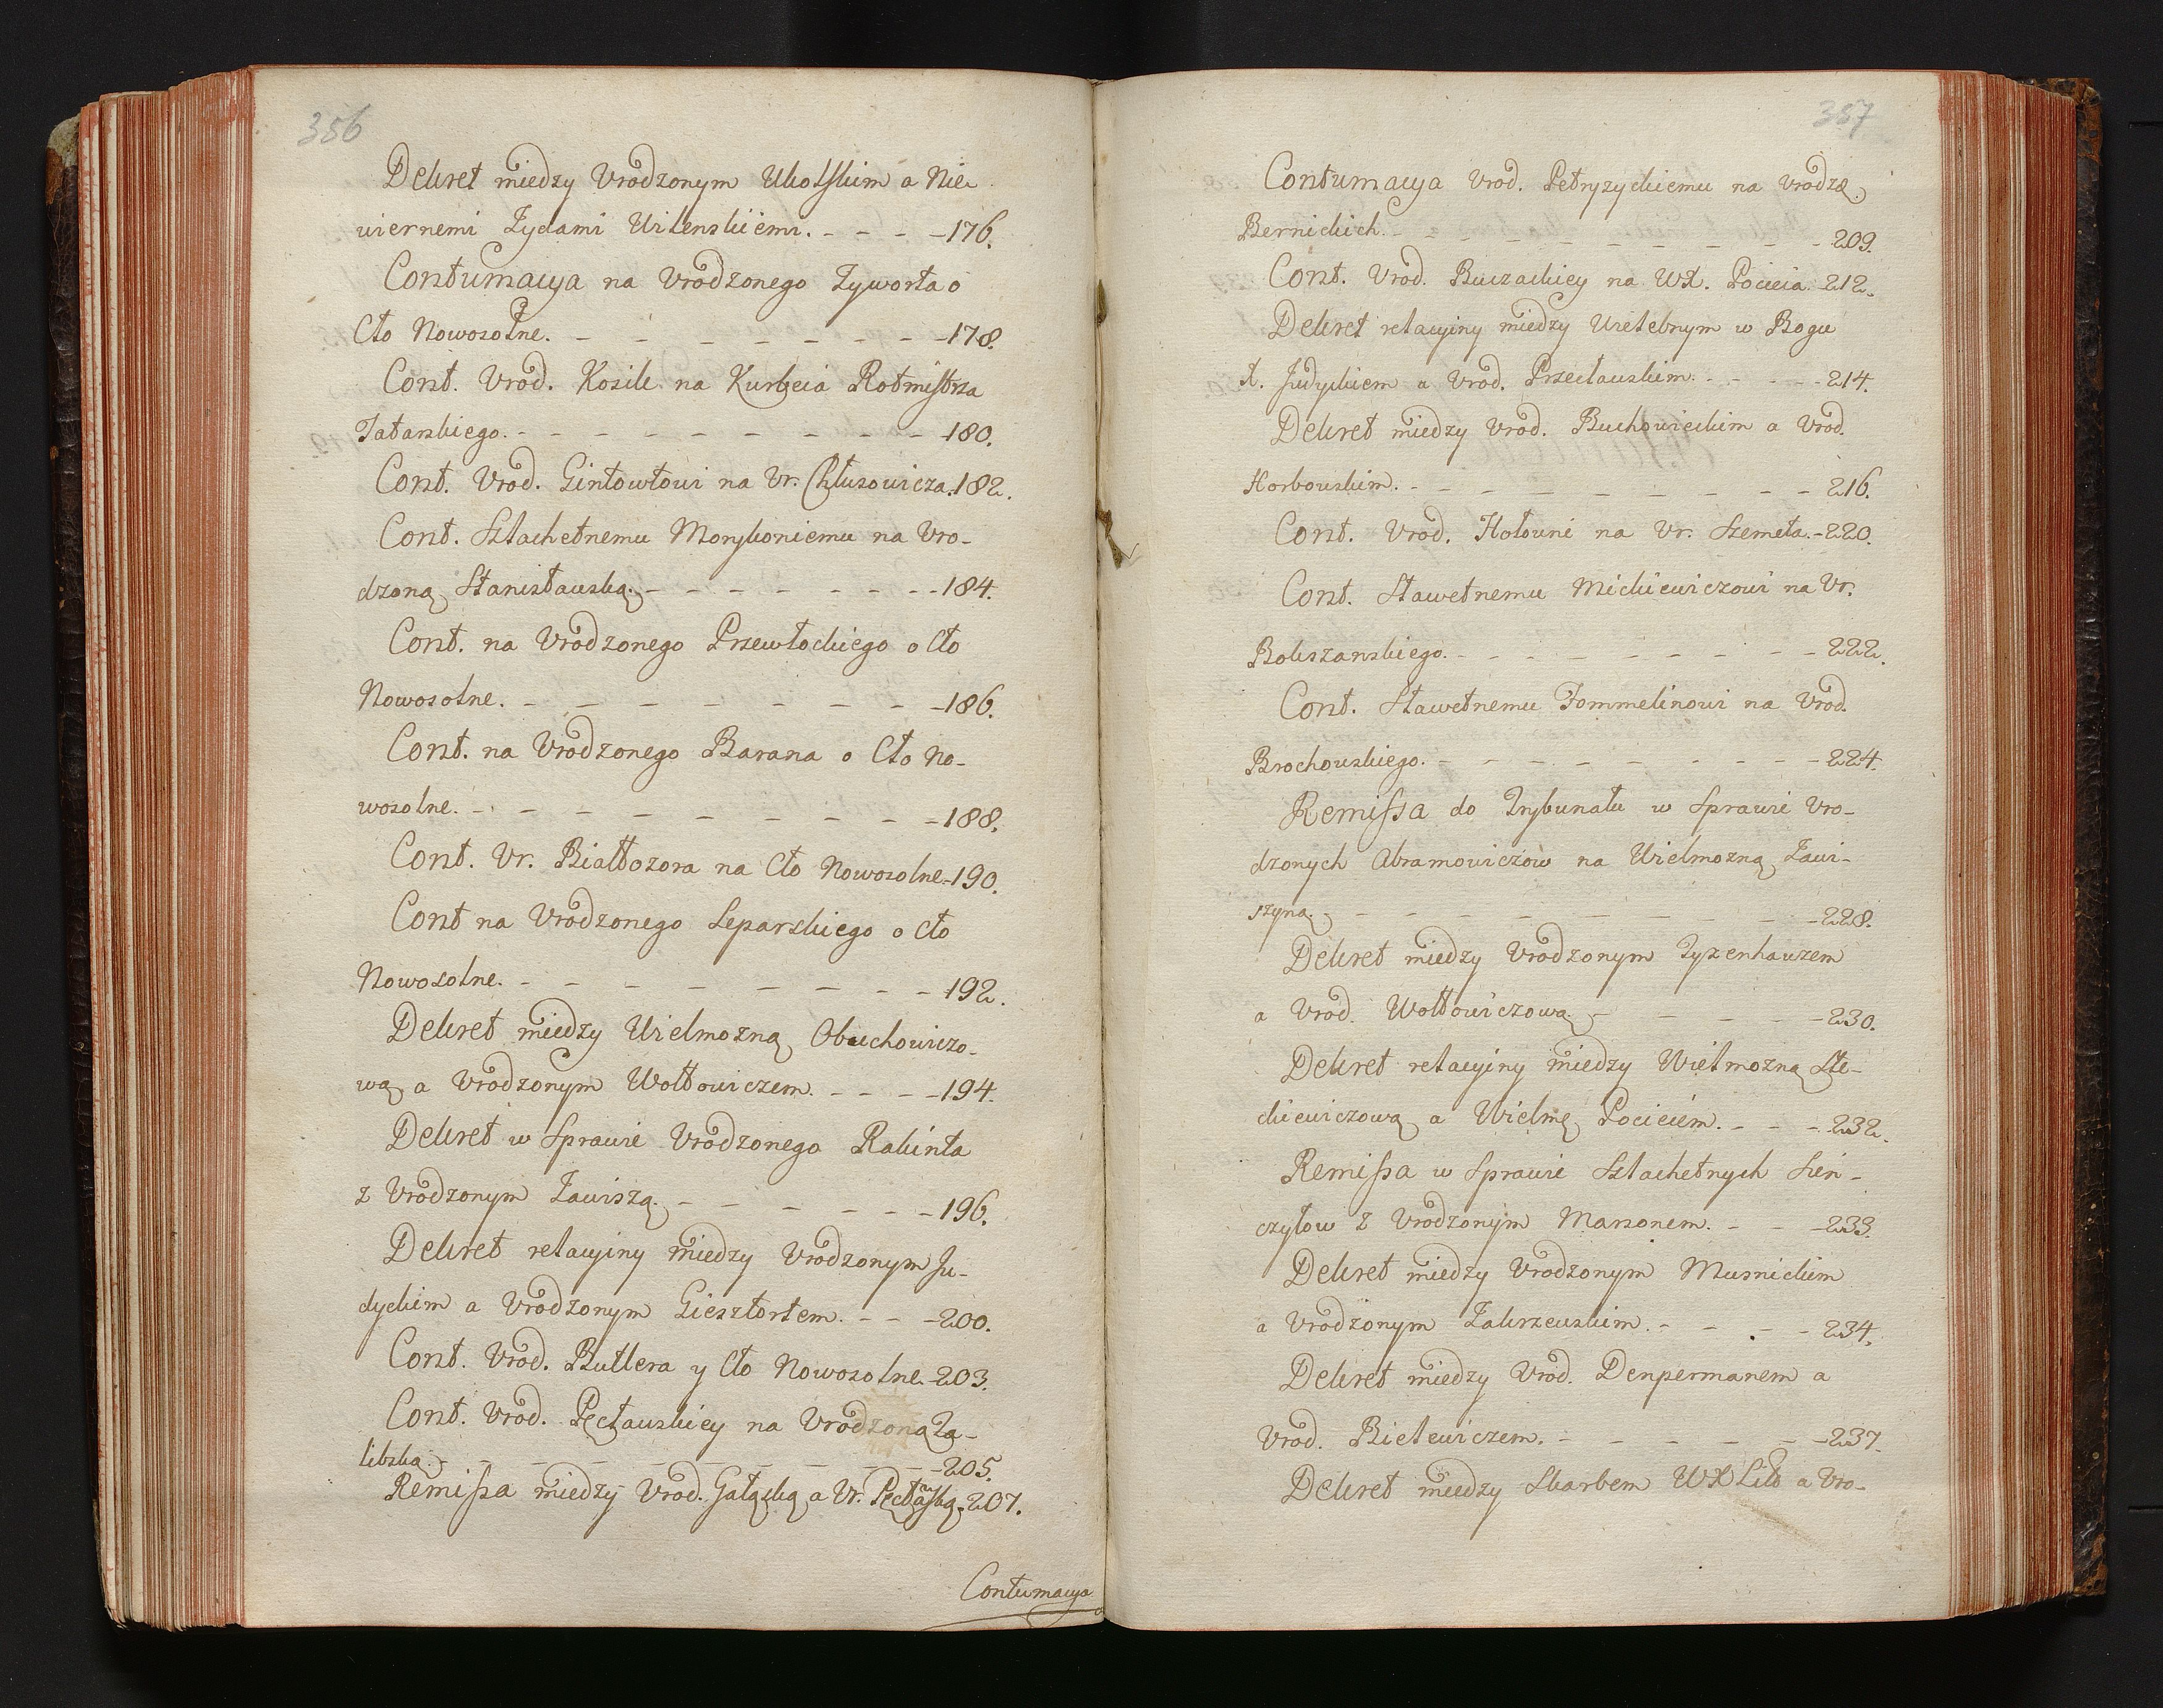 356
Dekret miedzy Vrodzonym Ukolskim a Nie-
wiernemi Żydami Wilenskiemi. - - - - 176.
Contumacya na Vrodzonego Żyworta o
Cło Nowosolne. - - - - - - - - 178.
Cont. Vrod. Kosile na Kurbcia Rotmistrza
Tatarskiego. - - - - - - - - - 180.
Cont. Vrod. Gintowtowi na Vr. Chłusowicza. 182.
Cont. Szlachetnemu Morykoniemu na Vro-
dzoną Stanisławską. - - - - - - - 184.
Cont. na Vrodzonego Przewłockiego o Cło
Nowosolne. - - - - - - - - 186.
Cont. na Vrodzonego Barana o Cło No-
wosolne. - - - - - - - - - 188.
Cont. Vr. Białłozora na Cło Nowosolne - 190.
Cont na Vrodzonego Leparskiego o Cło
Nowosolne. - - - - - - - - 192.
Dekret miedzy Wielmozną Obuchowiczo-
wą a Vrodzonym Wołłowiczem. - - - - 194.
Dekret w Sprawie Vrodzonego Rakinta
z Vrodzonym Zawiszą. - - - - - - 196.
Dekret relacyiny miedzy Vrodzonym Ju-
dyckim a Vrodzonym Giesztortem. - - - 200.
Cont. Vrod. Butlera y Cło Nowosolne - 203.
Cont. Vrod. Pęcławskiey na Vrodzoną Za-
libską. - - - - - - - - - 205.
Remissa miedzy Vrod. Gałęcką a Vr. Pęcławską. 207.
Contumacya
357
Contumacya Vrod. Petryzyckiemu na Vrodzę.
Bernickich. - - - - - - - - - 209.
Cont. Vrod. Buczackiey na WX. Pocieia - 212.
Dekret relacyiny miedzy Wielebnym w Bogu
X. Judyckiem a Vrod. Przecławskim. - - - - 214.
Dekret miedzy Vrod. Buchowieckim a Vrod.
Horbowskim. - - - - - - - - - 216.
Cont. Vrod. Hołowni na Vr. Szemeta. - 220.
Cont. Sławetnemu Mickiewiczowi na Vr.
Bokszanskiego. - - - - - - - - 222.
Cont. Sławetnemu Tommelinowi na Vrod.
Brochowskiego. - - - - - - - - - 224.
Remissa do Trybunału w Sprawie Vro-
dzonych Abramowiczow na Wielmozną Zawi-
szyną. - - - - - - - - - 228.
Dekret miedzy Vrodzonym Tyzenhauzem
a Vrod. Wołłowiczową. - - - - - 230.
Dekret relacyiny miedzy Wielmozną Ste-
ckiewiczową a Wielmę Pocieiem. - - - 232.
Remissa w Sprawie Szlachetnych Sień-
czyłow z Vrodzonym Massonem. - - - 233.
Dekret miedzy Vrodzonym Musnickim
a Vrodzonym Zakrzewskim. - - - - 234.
Dekret miedzy Vrod. Denpermanem a
Vrod. Bielewiczem. - - - - - - 237.
Dekret miedzy Skarbem WX Litt a Vro-